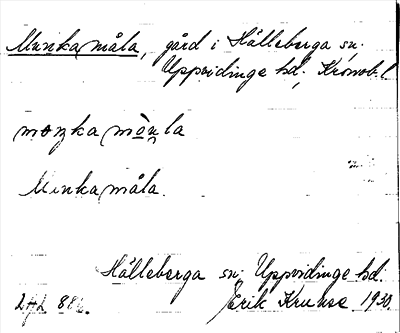 Munkamåla, gård i Hälleberga sn.
Uppvidinge hd, Kronob. l.
Munkamåla.
Hälleberga sn. Uppvidinge hd.
Erik Kruuse 1930.